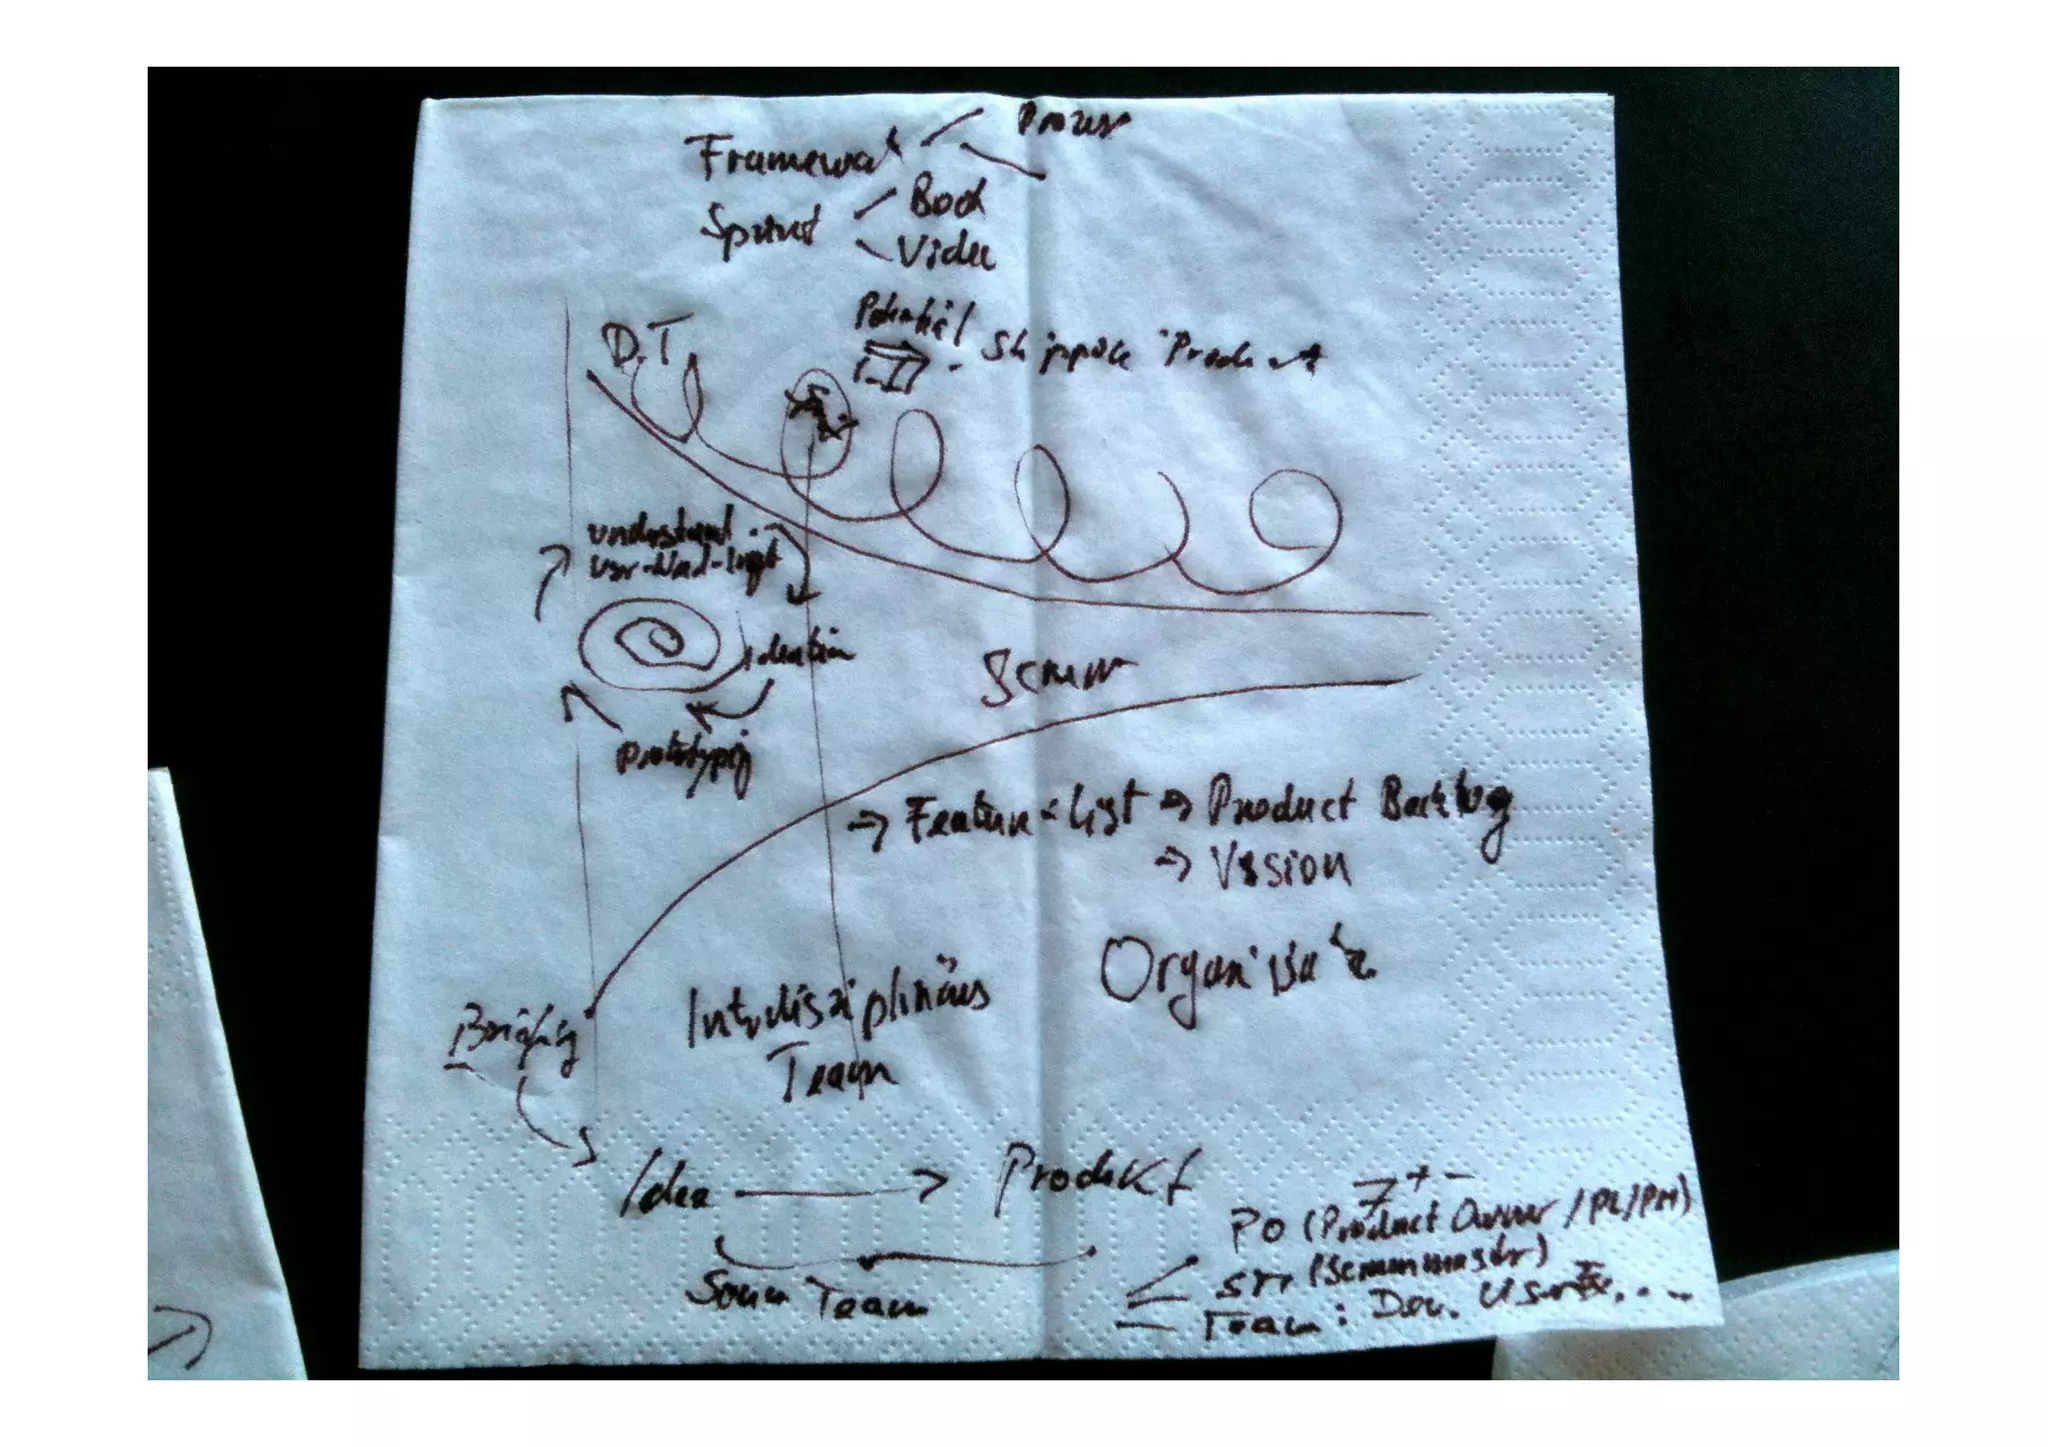 Framework
Prozess
Sprint
Book
Video
D.T
Potential
Shippable Product
Sprint
understand
User-Need-
Ideation
Prototyping
Scrum
→ Feature-List → Product Backlog
→ Vision
Organisat
Briefing
Interdisziplinäres
Team
Idea → Produkt
7 + -
PO (Product Owner / PL/PM)
Scrum Team
SM (Scrummaster)
Team: Dev. ...